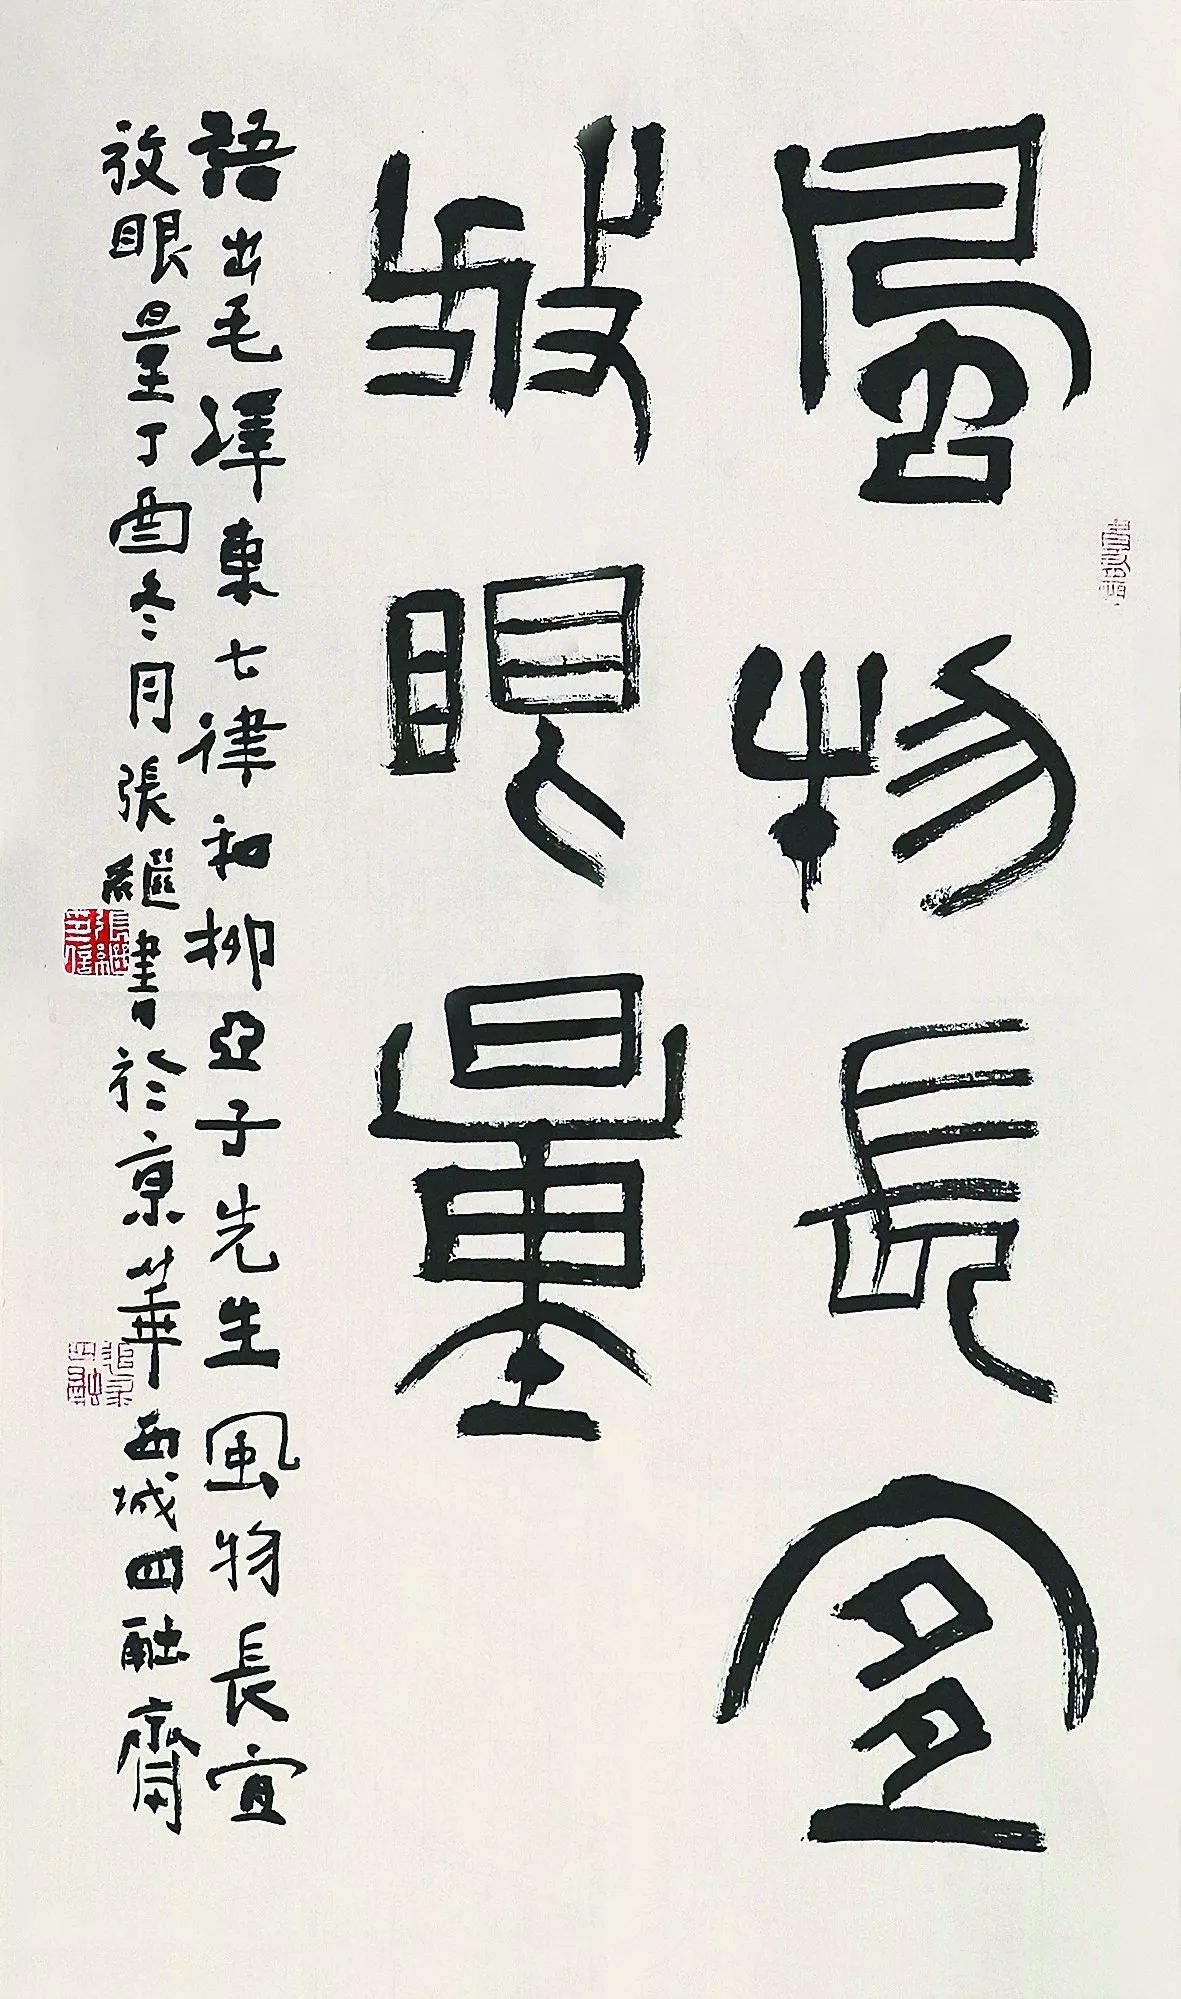 風物長宜
放眼量
語出毛澤東七律和柳亞子先生風物長宜
放眼量丁酉冬月張繼書於京華西城四融齋
張繼